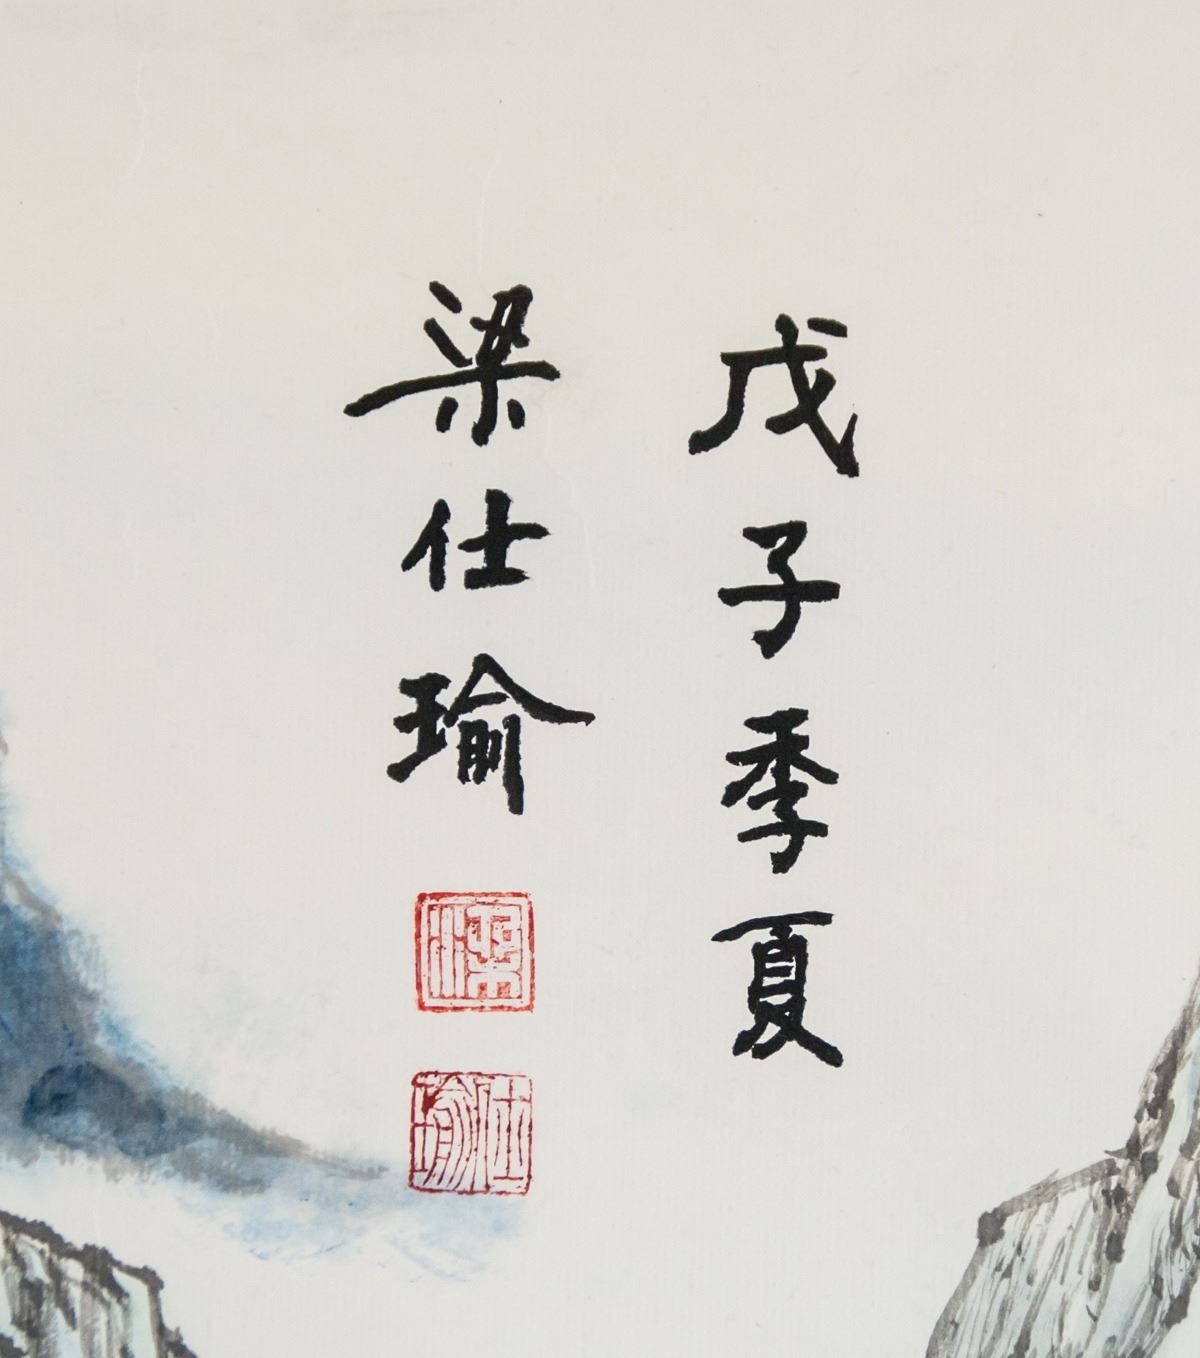 戊子季夏
梁仕瑜
梁
仕瑜